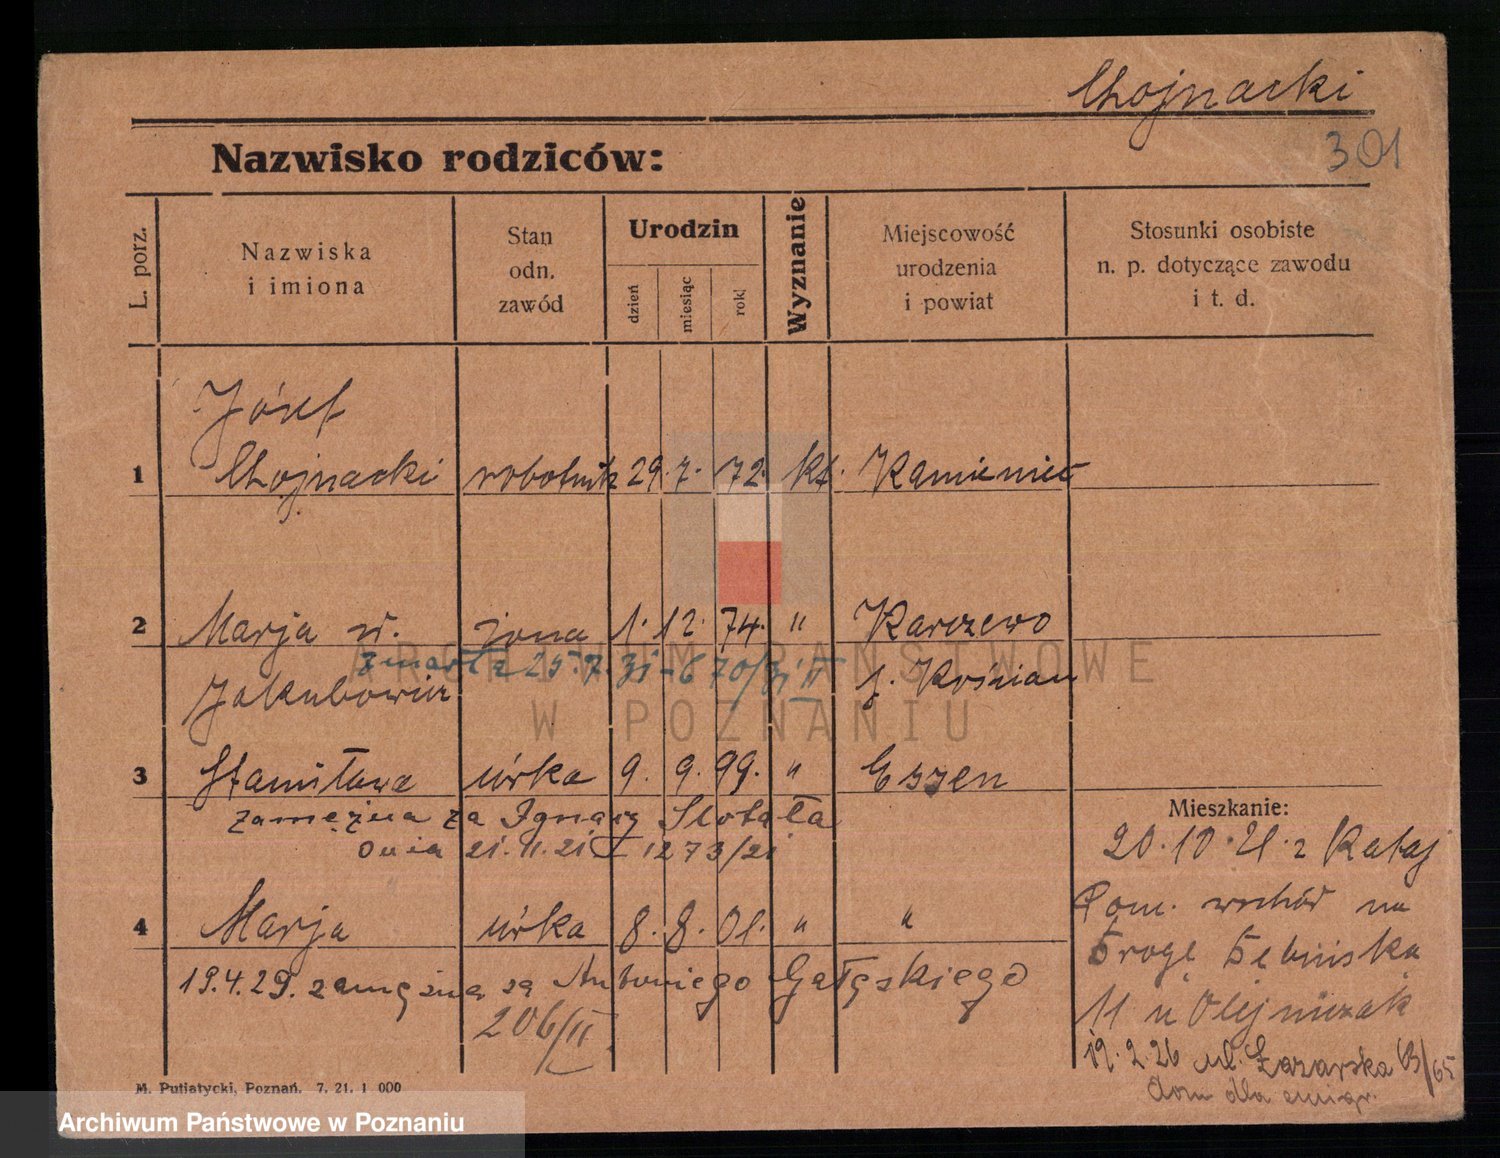 Chojnacki
301
Nazwisko rodziców:
L. porz.
Nazwiska
i imiona
Stan
odn.
zawód
Urodzin
dzień
miesiąc
rok
Wyznanie
Miejscowość
urodzenia
i powiat
Stosunki osobiste
n. p. dotyczące zawodu
i t. d.
Józef
1 Chojnacki robotnik 29. 7. 72. kt. Kamieniec
2 Marja ur. żona 1. 12. 74. " Karczewo
zmarła 25.7.31 - 670/31 II
Jakubowicz p. Kościan
3 Stanisława córka 9. 9. 99. " Essen
zamężna za Ignacy Slotała
dnia 21.11.21 I 1273/21
4 Marja córka 8. 8. 01. " "
19.4.29. zamężna za Antoniego Gałęskiego
206/II
Mieszkanie:
20.10.21. z Rataj
Pom. wschód na
Drogę Dębińską
11 u Olejniczak
19.2.26 ul. Łazarska 63/65
dom dla emigr.
M. Putiatycki, Poznań. 7. 21. 1 000
ARCHIWUM PAŃSTWOWE
W POZNANIU
Archiwum Państwowe w Poznaniu